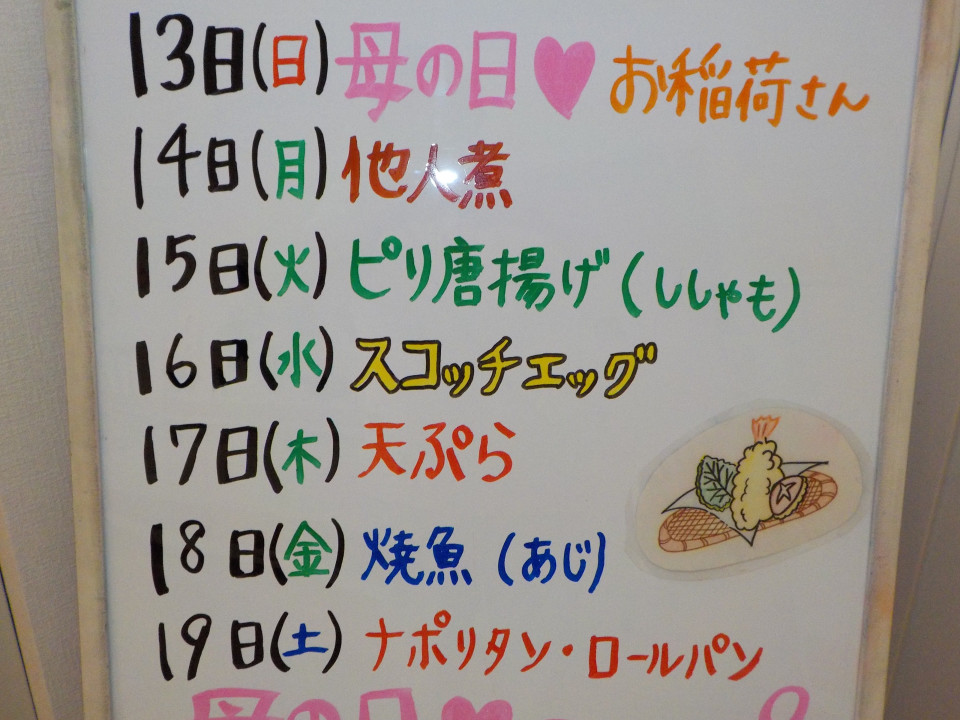 13日(日)母の日♥お稲荷さん
14日(月)他人煮
15日(火)ピリ唐揚げ(ししゃも)
16日(水)スコッチエッグ
17日(木)天ぷら
18日(金)焼魚(あじ)
19日(土)ナポリタン・ロールパン
母の日♥